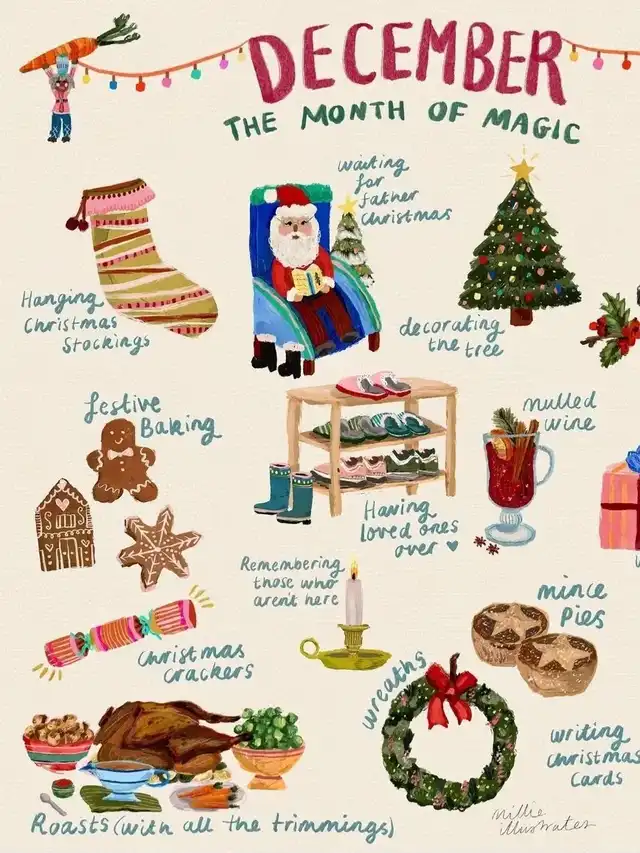 DECEMBER
THE MONTH OF MAGIC
waiting
for
father
christmas
Hanging
Christmas
Stockings
decorating
the tree
festive
Baking
mulled
wine
Having
loved ones
over ♥
Remembering
those who
aren't here
mince
Pies
Christmas
crackers
wreaths
writing
christmas
cards
Roasts (with all the trimmings)
millie
illustrates